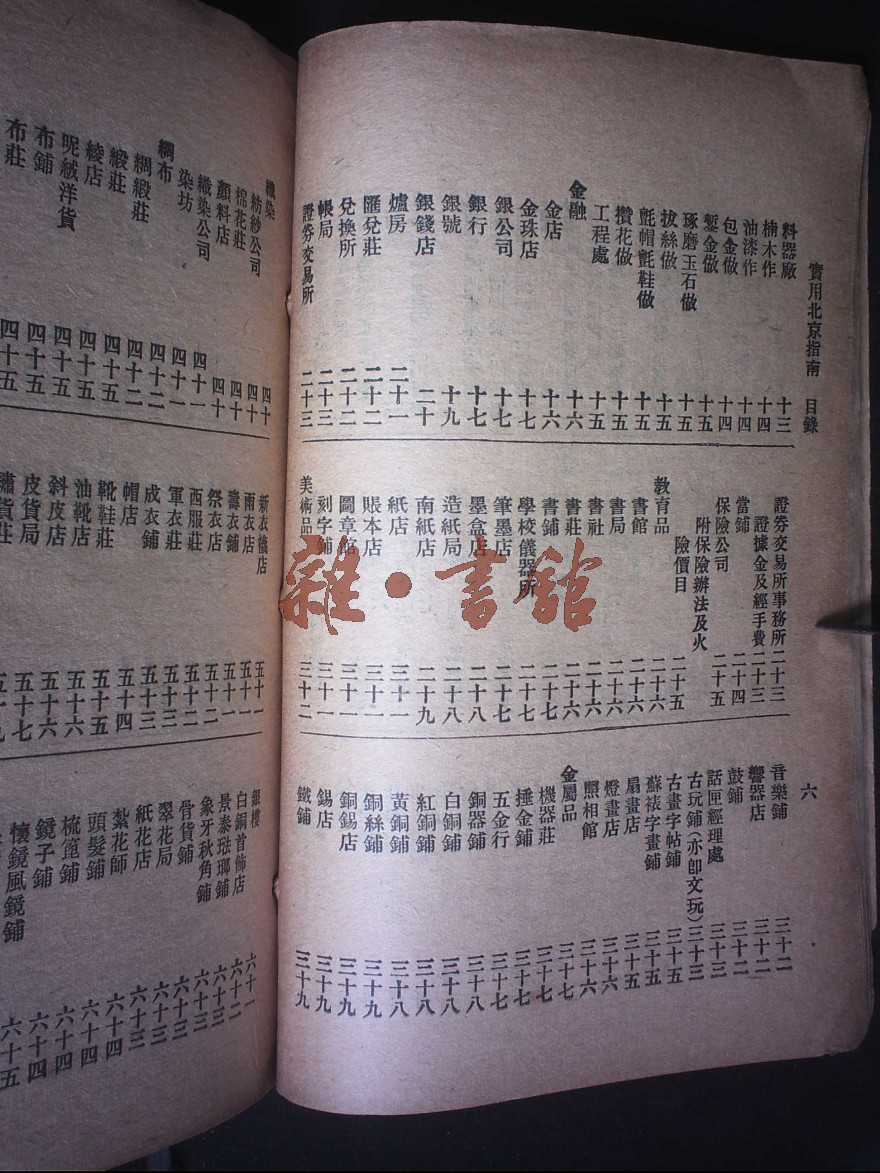 實用北京指南 目錄
六
料器廠 十三
楠木作 十四
油漆作 十四
包金做 十四
鏨金做 十五
琢磨玉石做 十五
拔絲做 十五
氈帽氈鞋做 十五
攢花做 十五
工程處 十五
金融 十六
金店 十六
金珠店 十七
銀公司 十七
銀行 十七
銀號 十九
銀錢店 二十
爐房 二十一
匯兌莊 二十二
兌換所 二十二
帳局 二十三
證券交易所 二十三
證券交易所事務所 二十三
證據金及經手費 二十三
當鋪 二十四
保險公司 二十五
附保險辦法及火
險價目 二十五
教育品 二十六
書館 二十六
書局 二十六
書社 二十六
書莊 二十六
書鋪 二十七
學校儀器所 二十七
筆墨店 二十七
墨盒店 二十八
造紙局 二十八
南紙店 二十九
紙店 三十一
賬本店 三十一
圖章館 三十一
刻字鋪 三十一
美術品 三十二
音樂鋪 三十二
響器店 三十二
鼓鋪 三十二
話匣經理處 三十三
古玩鋪(亦卽文玩) 三十三
古畫字帖鋪 三十五
蘇裱字畫鋪 三十五
扇畫店 三十五
燈畫店 三十六
照相館 三十六
金屬品 三十七
機器莊 三十七
捶金鋪 三十七
五金行 三十七
銅器鋪 三十八
白銅鋪 三十八
紅銅鋪 三十八
黃銅鋪 三十八
銅絲鋪 三十九
銅錫鋪 三十九
錫店 三十九
鐵鋪 三十九
織染 四十
紡紗公司 四十
棉花莊 四十
顏料店 四十
織染公司 四十一
染坊 四十一
綢布 四十二
綢緞莊 四十二
緞莊 四十五
綾店 四十五
呢絨洋貨 四十五
布鋪 四十五
布莊 四十五
新衣機店 五十一
雨衣店 五十一
壽衣鋪 五十一
祭衣店 五十二
西服莊 五十二
軍衣莊 五十三
成衣鋪 五十三
帽店 五十四
靴鞋莊 五十五
油靴店 五十六
斜皮店 五十六
皮貨局 五十七
繡貨莊 五十九
銀樓 六十一
白銅首飾店 六十二
景泰琺瑯鋪 六十三
象牙秋角鋪 六十三
骨貨鋪 六十三
翠花局 六十三
紙花店 六十三
紮花師 六十四
頭髮鋪 六十四
梳篦鋪 六十四
鏡子鋪 六十四
懷鏡風鏡鋪 六十五
雜·書館